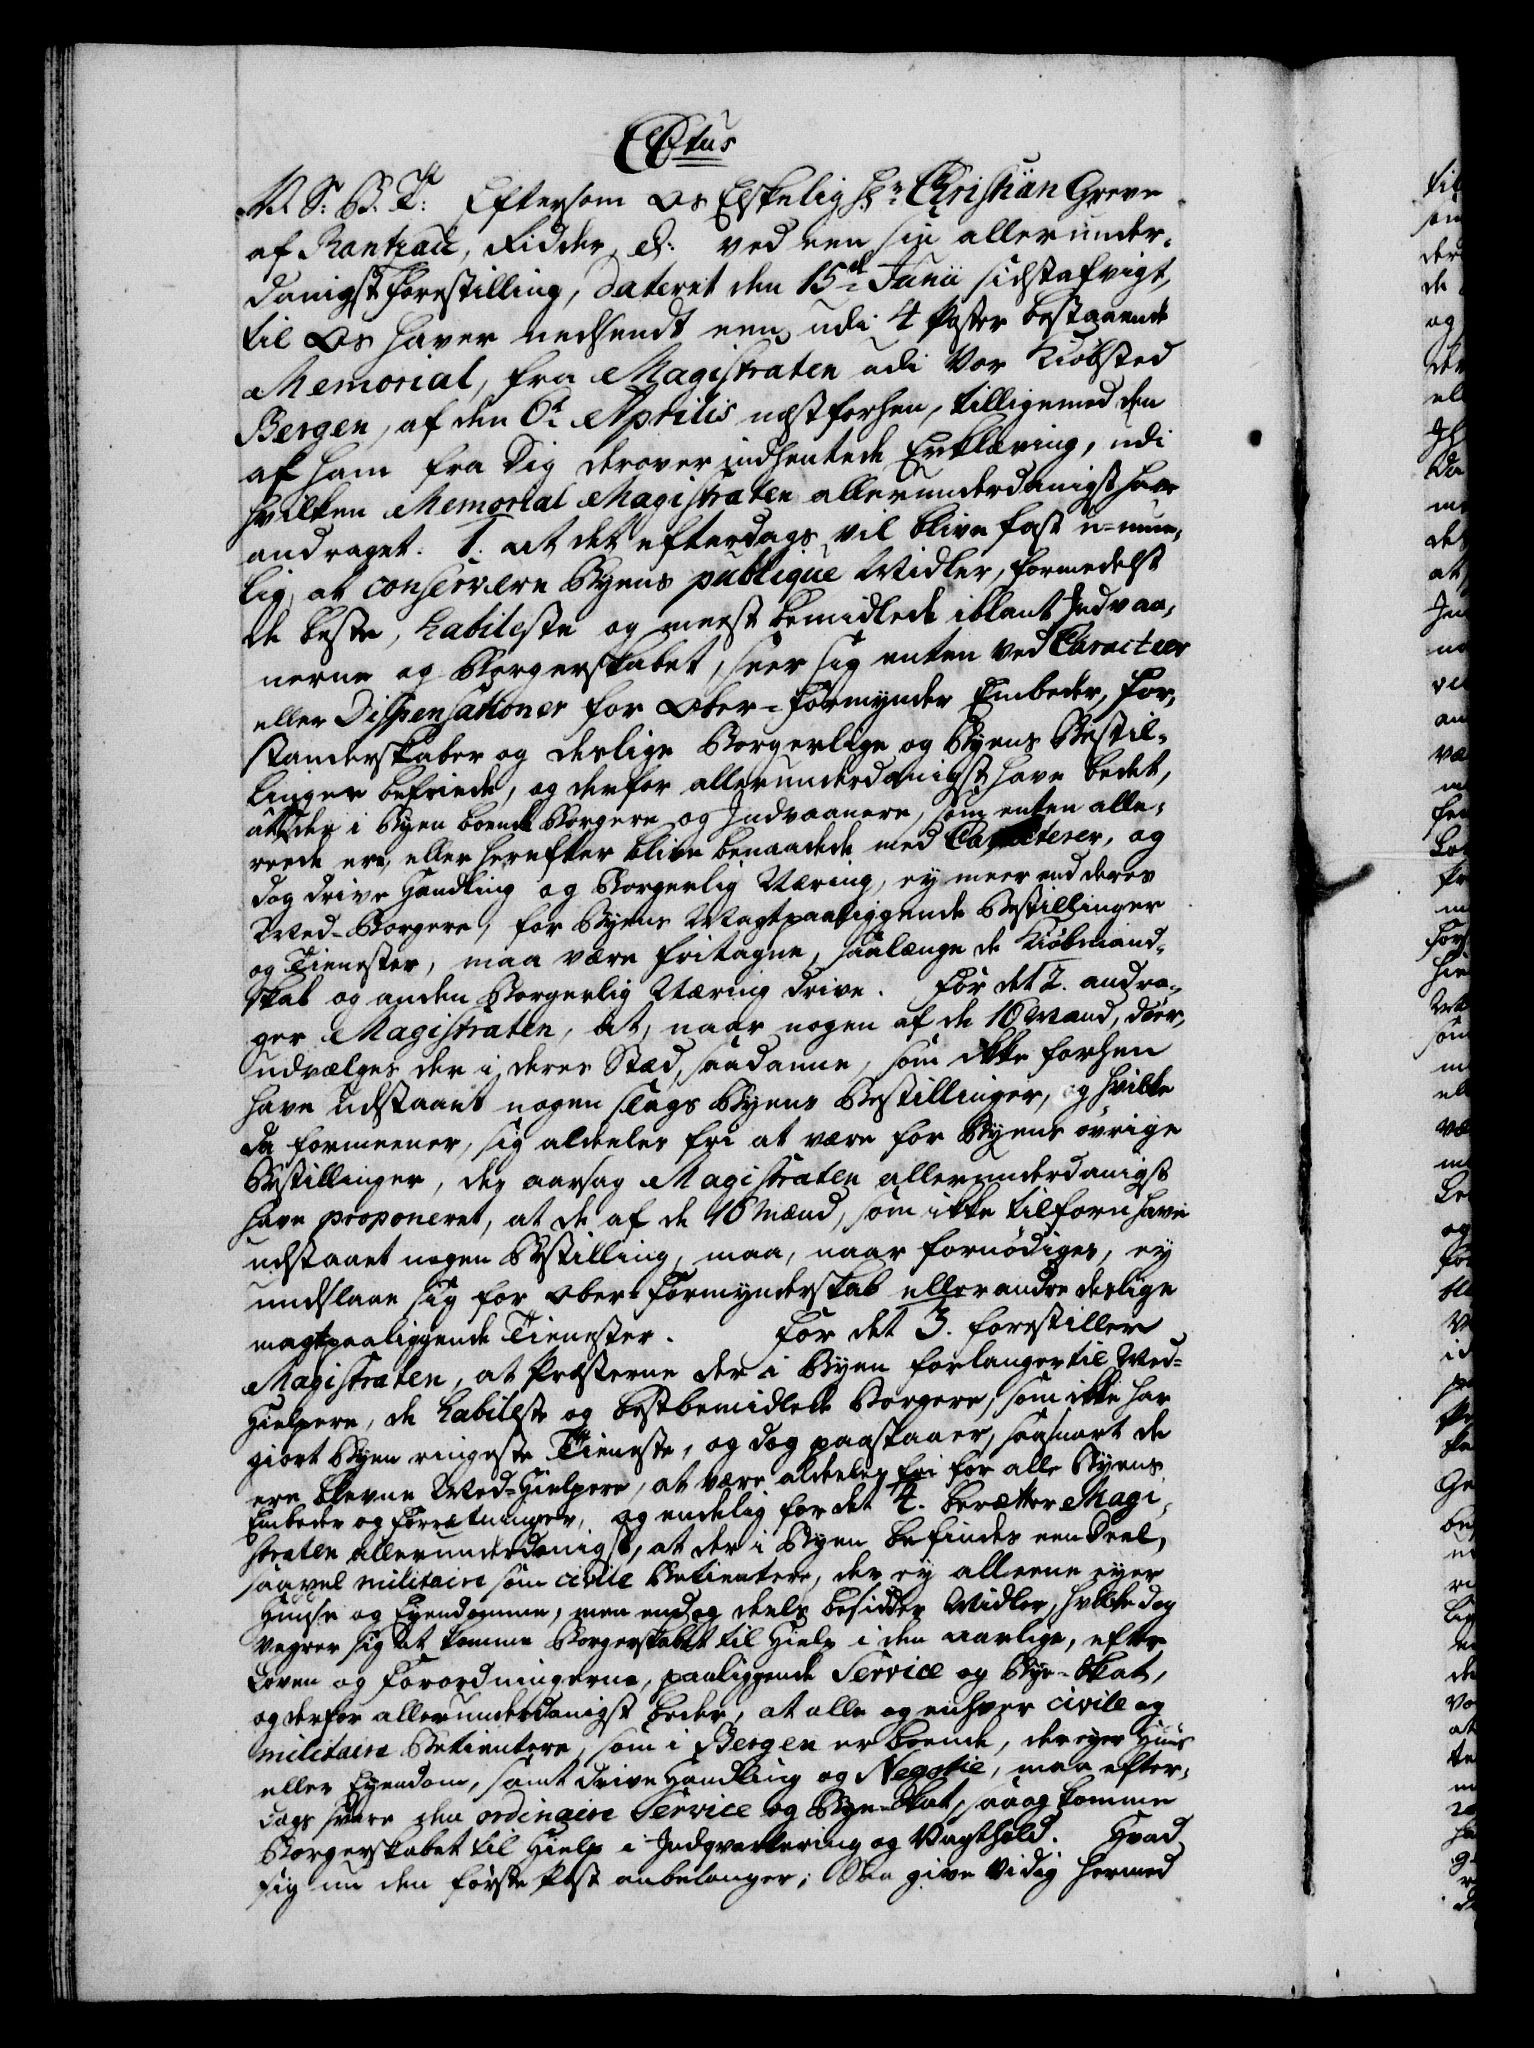 CVtus
V. S. G. T. Eftersom Os Elskelig Hr: Christian Greve
af Rantzau, Ridder, &: ved een sin allerunder-
danigst Forestilling, dateret den 15de Junii sidstafvigt,
til Os haver nedsendt een udi 4 Poster bestaaende
Memorial, fra Magistraten udi Vor Kiøbsted
Bergen, af den 6te Aprilis næstforhen, tilligemed den
af ham fra Dig derover indhentede Erklæring, udi
hvilken Memorial Magistraten allerunderdanigst have
andraget. 1. at det efterdags vil blive fast u-mue-
lig, at conservere Byens publique Midler, formedelst
de beste, habileste og meest bemidlede iblant Indvaa-
nerne og Borgerskabet, seer sig enten ved Caracteer
eller Dispensationer for Ober-Formynder Embeder, For-
standerskaber og deslige Borgerlige og Byens Bestil-
linger befriede, og derfor allerunderdanigst have bedet,
at de i Byen boende Borgere og Indvaanere, som enten alle-
reede ere, eller herefter blive benaadede med Caracterer, og
dog drive Handling og Borgerlig Næring, ey meer end deres
Med-Borgere, for Byens Magtpaaliggende Bestillinger
og Tienester, maa være fritagne, saalænge de Kiøbmand-
skab og anden Borgerlig Næring drive. For det 2. andra-
ger Magistraten, at, naar nogen af de 16 Mænd, døer,
udvælges der i deres Sted, saadanne, som ikke forhen
have udstaaet nogen slags Byens Bestillinger, og hvilke
da formeener, sig aldeeles fri at være for Byens øvrige
Bestillinger, des aarsag Magistraten allerunderdanigst
have proponeret, at de af de 16 Mænd, som ikke tilforn have
udstaaet nogen Bestilling, maa, naar fornødiges, ey
undslaae sig for Ober-Formynderskab eller andre deslige
magtpaaliggende Tienester. For det 3. forestiller
Magistraten, at Præsterne der i Byen forlanger til Med-
hielpere, de habileste og bestbemidlede Borgere, som ikke har
giort Byen ringeste Tieneste, og dog paastaaer, saasnart de
ere blevne Med-Hielpere, at være aldeeles fri for alle Byens
Embeder og Forretninger, og endelig for det 4. beretter Magi-
straten allerunderdanigst, at der i Byen befindes een Deel,
saavel militaire som civile Betientere, der ey alleene eyer
Huuse og Eyendomme, men endog deels besidder Midler, hvilke dog
vegrer sig at komme Borgerskabet til Hielp i den aarlige, efter
Loven og Forordningerne, paaliggende Service og Bye-Skat,
og derfor allerunderdanigst beder, at alle og enhver civile og
militaire Betientere, som i Bergen er boende, der eyer Huus
eller Eyendom, samt drive Handling og Negotie, maa efter-
dags svare den ordinaire Service og Bye-Skat, saa og komme
Borgerskabet til Hielp i Indqvartering og Vagthold. Hvad
sig nu den første Post anbelanger; Saa give Vi dig hermed